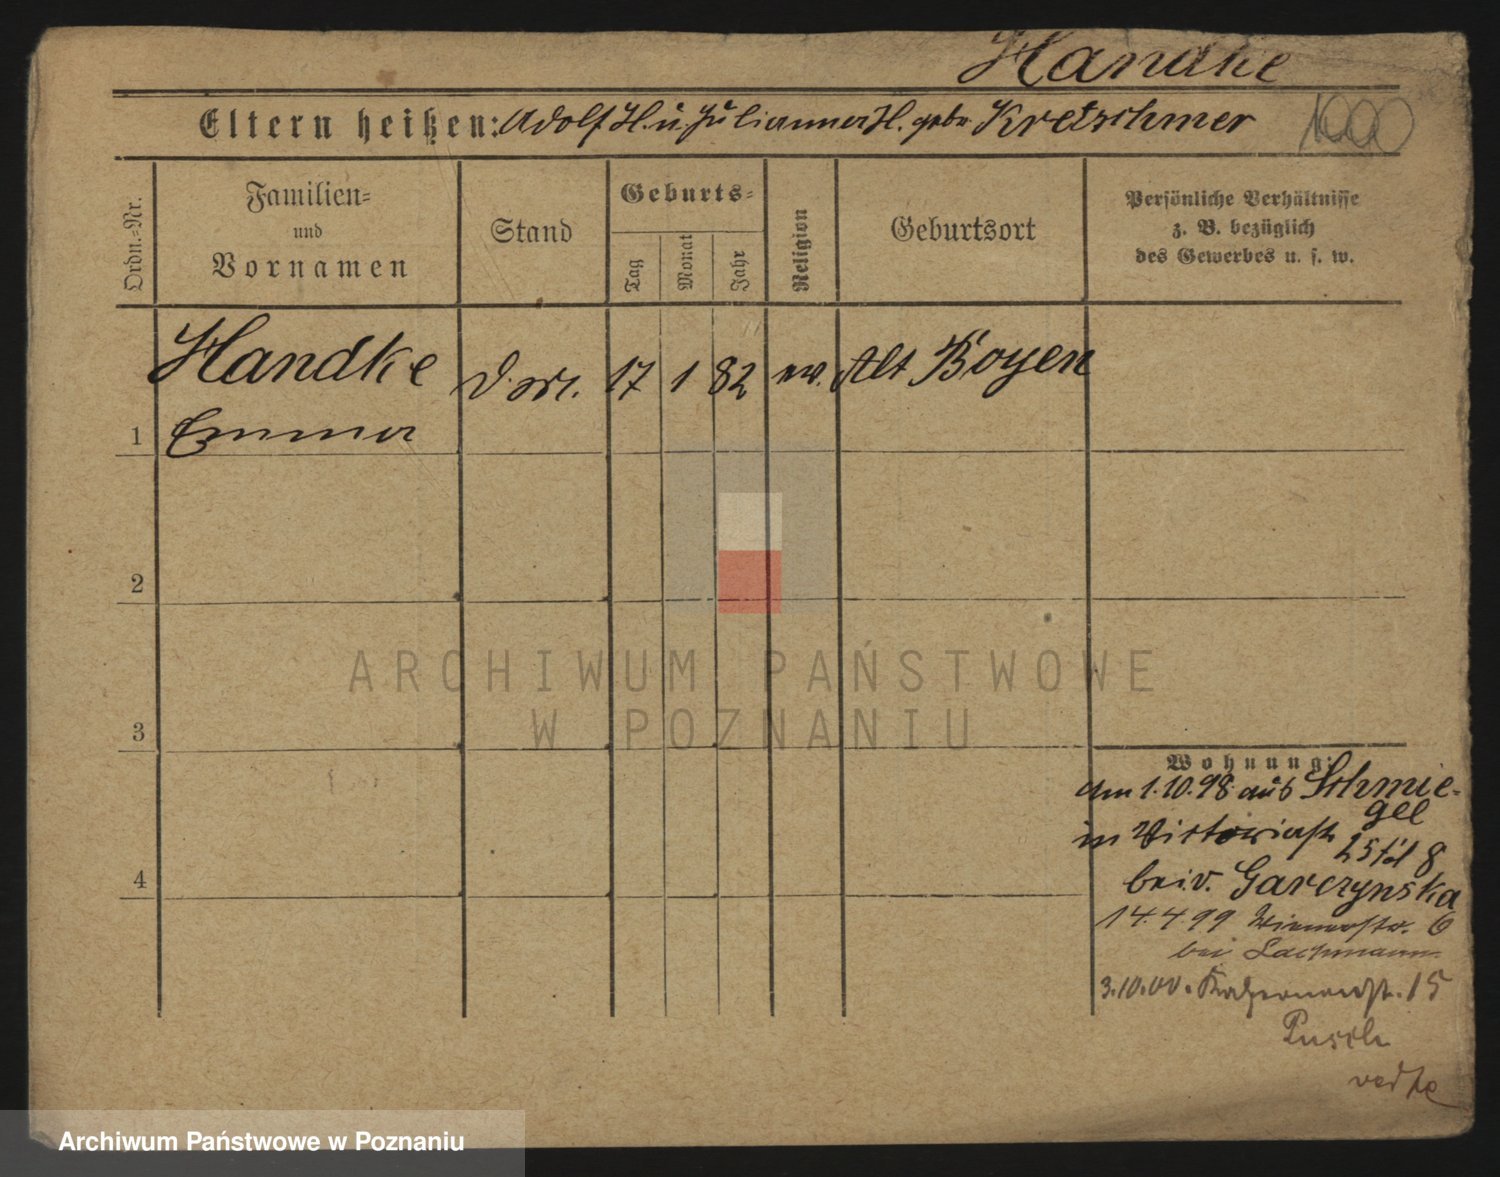 Handke
Eltern heißen: Adolf H. u. Julianna H. geb. Kretschmer
100
Ordn.-Nr.
Familien-
und
Vornamen
Stand
Geburts-
Tag
Monat
Jahr
Religion
Geburtsort
Persönliche Verhältnisse
z. B. bezüglich
des Gewerbes u. s. w.
Handke
17 1 82 ev. Alt Boyen
1 Emma
2
3
4
ARCHIWUM PAŃSTWOWE
W POZNANIU
Wohnung:
am 1.10.98 aus Schmie-
gel
in Victoriastr 25
bei v. Garczynska
14.4.99 Wienerstr. 6
bei Lachmann
3.10.00. 15
Pusch
Archiwum Państwowe w Poznaniu